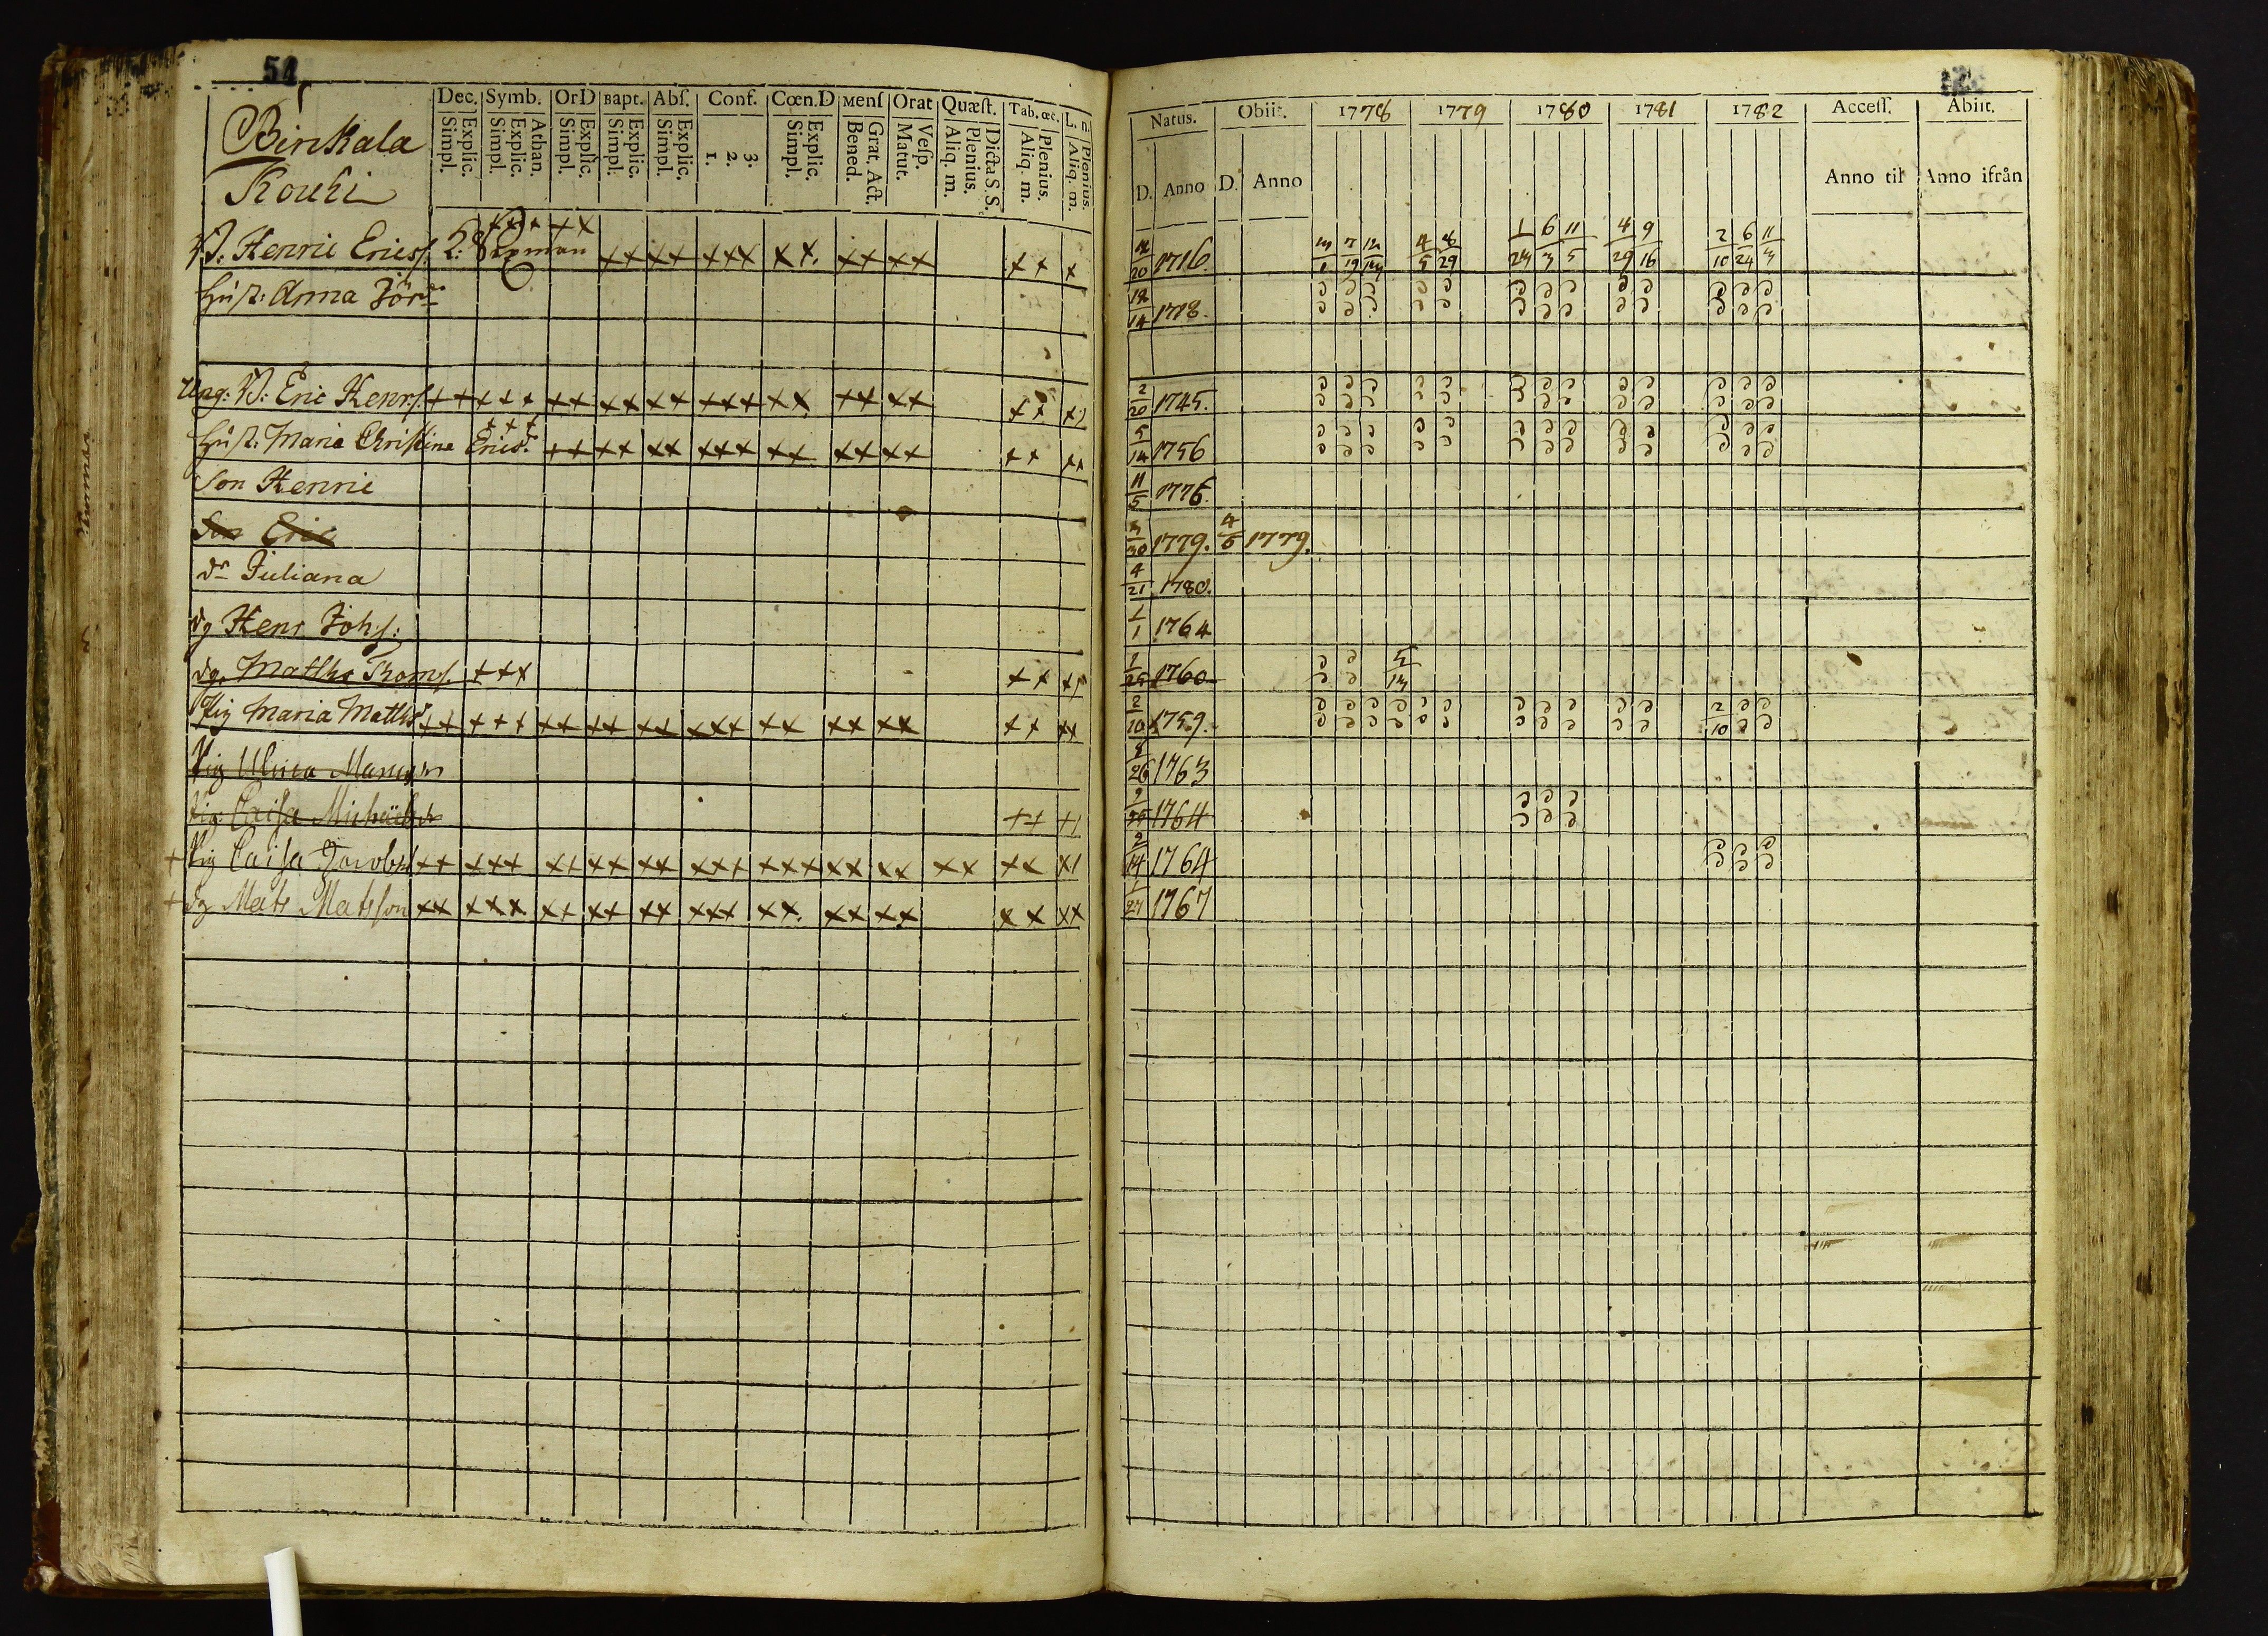 54
Dec. Symb. OrD Bapt. Abſ. Conf. Cœn.D Menſ Orat Quæſt. Tab. œc. L. n.
Simpl. Explic. Simpl. Explic. Athan. Simpl. Explic. Simpl. Explic. Simpl. Explic. 1. 2. 3. Simpl. Explic. Bened. Grat. Act. Matut. Veſp. Aliq. m. Plenius. Dicta S. S. Aliq. m. Plenius. Aliq. m. Plenius.
Binkala
Kouhi
B: Henric Ericsſ.
Huſt: Anna Jör
Ung: B: Eric Henrſ.
Huſt: Maria Chriſtina Ericd.
Son Henric
Son Eric
dr Juliana
dg Henr Johſ:
dg. Matths Thomſ.
Pig Maria Matthsd
Pig Ulrica
Pig: Caiſa
+ Pig Caiſa Jacobsd
+ dg Mats Matsſon
Natus. Obiit. 1778 1779 1780 1781 1782 Acceſſ. Abiit.
D. Anno D. Anno Anno til Anno ifrån
12/20 1716. 4/5 8/29 1/23 6/3 11/5 4/29 9/16 2/10 6/24 11/3
12/14 1718.
2/20 1745.
5/14 1756
11/5 1776.
3/30 1779. 4/5 1779.
4/21 1780.
1/1 1764
1/25 1760 5/13
2/10 1759. 2/10
1763
1764
2/14 1764
1/27 1767